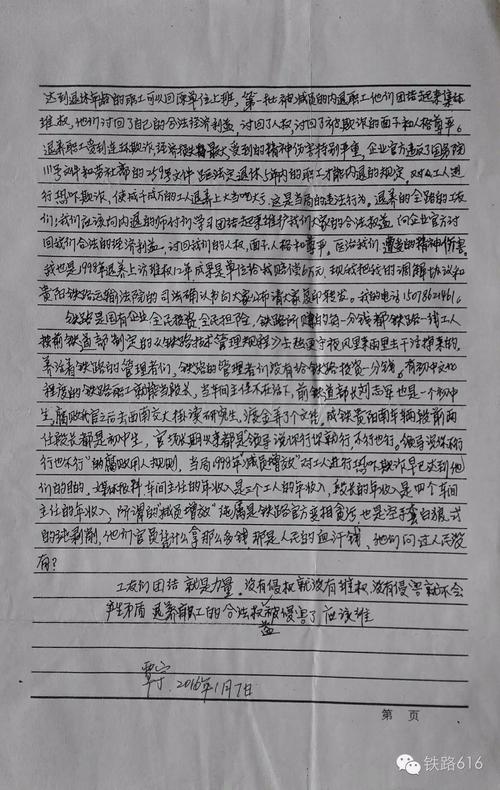 达到退休年龄的职工可以回原单位上班，第一批被减员的内退职工他们团结起来集体
维权，他们讨回了自己的合法经济利益，讨回了人权，讨回了被欺诈的面子和人格尊严。
退养职工受到连环欺诈，经济损失最大受到的精神伤害特别严重，企业官方违反了国务院
111号文件和劳社部的 号文件 距法定退休5年内的职工才能内退的规定 对工人进行
恐吓欺诈，使成千成万的工人退养上大当吃大亏，这是当局的违法行为，退养的全路的工友
们：我们应该向内退的师付们学习团结起来维护我们大家的合法权益 向企业官方讨
回我们合法的经济利益，讨回我们的人权，面子，人格和尊严。医治我们 遭受的精神伤害。
我也是1998年退养上访维权12年成果是单位给我赔偿6万元，现我把我的调解协议和
贵阳铁路运输法院的司法确认书向大家公布请大家复印转发。我的电话15078621461。
铁路是国有企业 全民投资 全民担险，铁路所赚的每一分钱都铁路一线工人
按前铁道部制定的《铁路技术管理规程》去热遵守板风里来雨里去干活挣来的，
养活着铁路的管理者们，铁路的管理者们没有给铁路投资一分钱。有初中文化
程度的铁路职工都能当段长，当车间主任不在话下，前铁道部长刘志军也是一个初中
生，腐败升官之后去西南交大挂读研究生，渡金弄了个文凭。成铁贵阳南车辆段前两
任段长都是初中生，官场长期以来都是领导说你行你就行，不行也行。领导说你不行
行也不行"的腐败用人规则，当局1998年"减员增效"对工人进行恐吓欺诈早已达到他
们的目的，媒体报料车间主任的年收入是三个工人的年收入，段长的年收入是四个车间
主任的年收入，所谓的"减员增效"纯属是铁路官方变相贪污也是空手套白狼式
的残剥削，他们官员凭什么拿那么多钱，那是人民的血汗钱，他们问过人民没
有？
工友们团结 就是力量。没有侵权就没有维权，没有侵害就不会
产生矛盾 退养职工的合法权益被侵害了 应该维
覃宁 2016年1月7日
第 页
铁路616